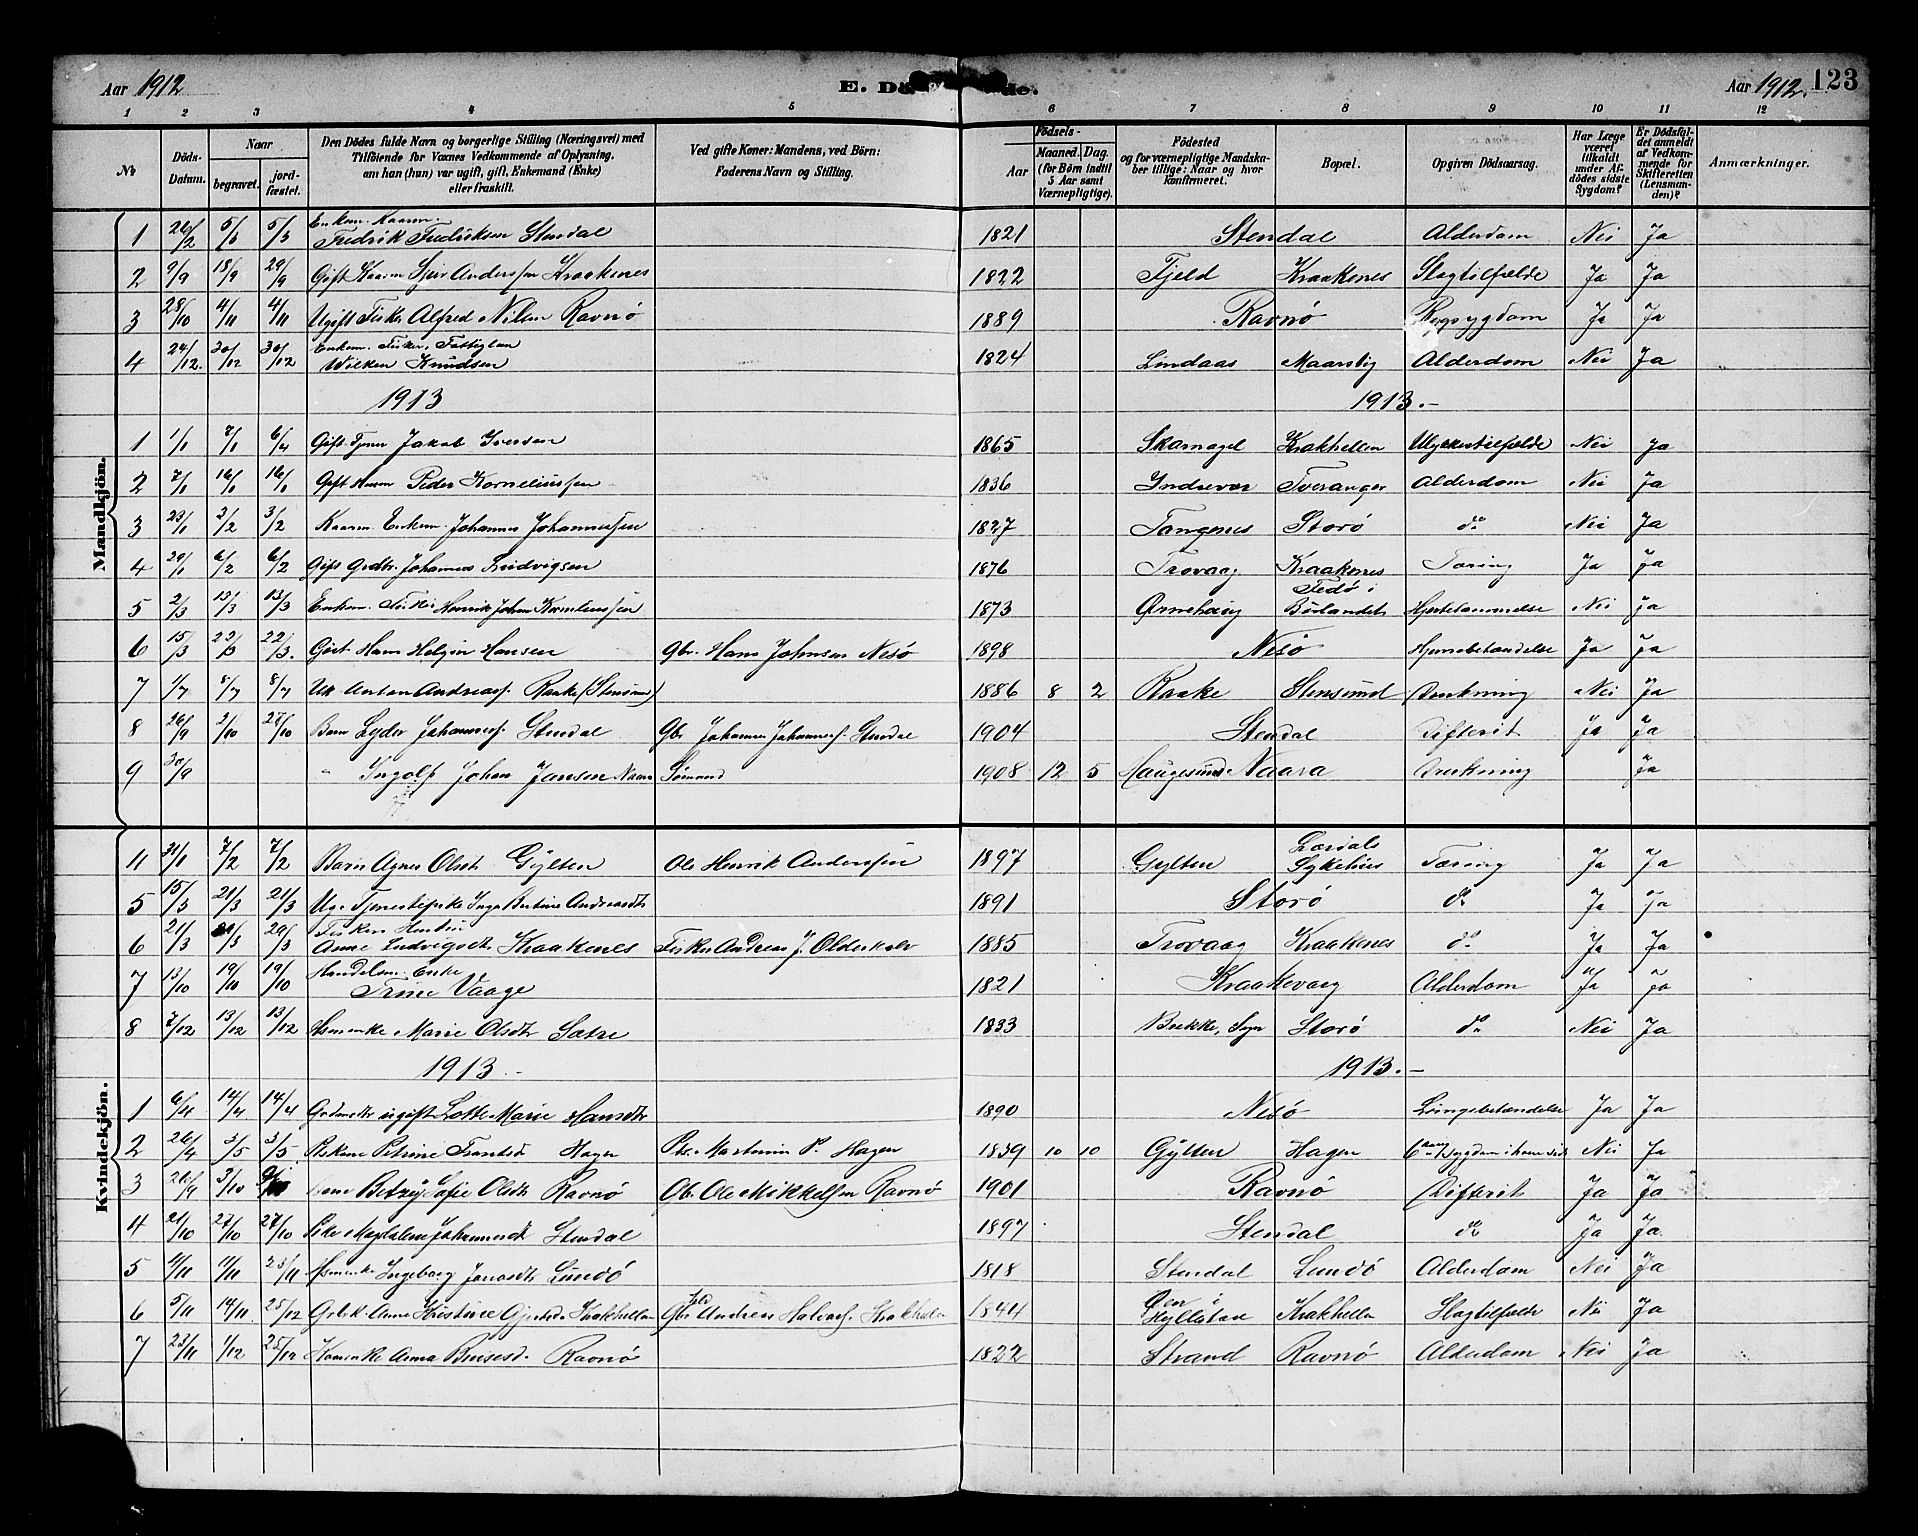 Aar 1912
E. Dö
de.
Aar 1912.
123
1 2 3 4 5 6 7 8 9 10 11 12
No
Döds-Datum.
Naar
begravet.
jordfæstet.
Den Dödes fulde Navn og borgerlige Stilling (Næringsvei) med
Tilföiende for Voxnes Vedkommende af Oplysning,
om han (hun) var ugift, gift, Enkemand (Enke)
eller fraskilt.
Ved gifte Koner: Mandens, ved Börn:
Faderens Navn og Stilling.
Födsels-
Aar
Maaned. Dag.
(for Börn indtil
5 Aar samt
Værnepligtige).
Födested
og for værnepligtige Mandska-
ber tillige: Naar og hvor
konfirmeret.
Bopæl.
Opgiven Dödsaarsag.
Har Læge
været
tilkaldt
under Af-
dödes sidste
Sygdom?
Er Dödsfal-
det anmeldt
af Vedkom-
mende for
Skifteretten
(Lensman-
den)?
Anmærkninger.
Mandkjön.
1 26/2 5/3 5/3 Enkem. Kaarm. Fredrik Fredriksen Stendal 1821 Stendal Alderdom Nei Ja
2 9/9 18/9 29/9 Gift Kaarm Sjur Anderssen Kraakenes 1822 Fjeld Kraakenes Slagtilfælde Ja Ja
3 28/10 4/11 4/11 Ugift Fisker Alfred Nilsen Ravnö 1889 Ravnö Ja Ja
4 24/12. 30/12 30/12 Enkem. Fisker, Fattiglem Wilken Knudsen 1824 Lindaas Alderdom Nei Ja
1913
1913.-
1 1/1 7/1 6/4 Gift. Jakob Iversen 1865 Skarnagel Krakhellen Ulykkestilfælde Nei Ja
2 7/1 16/1 16/1 Gift Peder Korneliussen 1836 Indrevær Tveranger Alderdom Nei Ja
3 23/1 3/2 3/2 Kaarm. Enkem. Johannes Johannessen 1827 Tangenes Storö do Nei Ja
4 29/1 6/2 6/2 Gift Grdbr. Johannes Ludvigsen 1876 Trovaag Kraakenes Tæring Ja Ja
5 2/3 13/3 13/3 Enkem. Fisker Henrik Johan Korneliussen 1873 Fedö i Bulandet Hjertelammelse Nei Ja
6 15/3 22/3 22/3. Hans Helgin Hansen Gbr. Hans Johnsen Nesö 1898 Nesö Hjernebetændelse Ja Ja
7 1/7 8/7 8/7 Uk Anton Andreass. Raake (Stensund) 1886 8 2 Raake Stensund Drukning Nei Ja
8 26/9 2/10 27/10 Barn Lyder Johanness. Stendal Gbr Johannes Johanness. Stendal 1904 Stendal Difterit Ja Ja
9 30/9 " Ingolf Johan Jansen Naara Sømand 1908 12 5 Haugesund Naara Drukning Ja
Kvindekjön.
4 31/1 7/2 7/2 Barn Agnes Olsdtr Gylten Ole Henrik Anderssen 1897 Gylten Lærdals Sykehus Tæring Ja Ja
5 15/3 21/3 21/3 Ug. Tjenestepike Inga Bertine Andreasdtr 1891 Storö do Ja Ja
6 21/3 29/3 Fiskers Hustru Anne Ludvigsdtr Kraakenes Fisker Andreas J. Olderkalv 1885 Trovaag Kraakenes do Ja Ja
7 13/10 19/10 19/10 Handelsm. Enke Trine Vaage 1821 Kraakevaag Alderdom Ja Ja
8 7/12 13/12 13/12 Marie Olsdtr Sætre 1833 Brekke, Sogn Storö do Nei Ja
1913.-
1913.-
1 6/4 14/4 14/4 ugift Lotte Marie Hansdtr 1890 Nesö Lungebetændelse Ja Ja
2 26/4 3/5 3/5. Petrine Hagen Martinus P. Hagen 1839 10 10 Gylten Hagen Nei Ja
3 26/9 3/10 Barn Betzy Sofie Olsdtr Ravnö Gbr. Ole Mikkelsen Ravnö 1901 Ravnö Difterit Ja Ja
4 21/10 27/10 27/10 Pike Magdalene Johannesdtr Stendal 1897 Stendal do Ja Ja.
5 4/11 11/11 23/11 Ingeborg Jonasdtr Lundö 1818 Stendal Lundö Alderdom Nei Ja
6 5/11 14/11. 25/12 Anne Kristine Krakhellen Gbr Andreas Halvors. Krakhellen 1844 Öen i Hyllestad Krakhellen Slagtilfælde Nei Ja
7 23/11 1/12 25/12 Anna Ravnö 1822 Strand Ravnö Alderdom Nei Ja